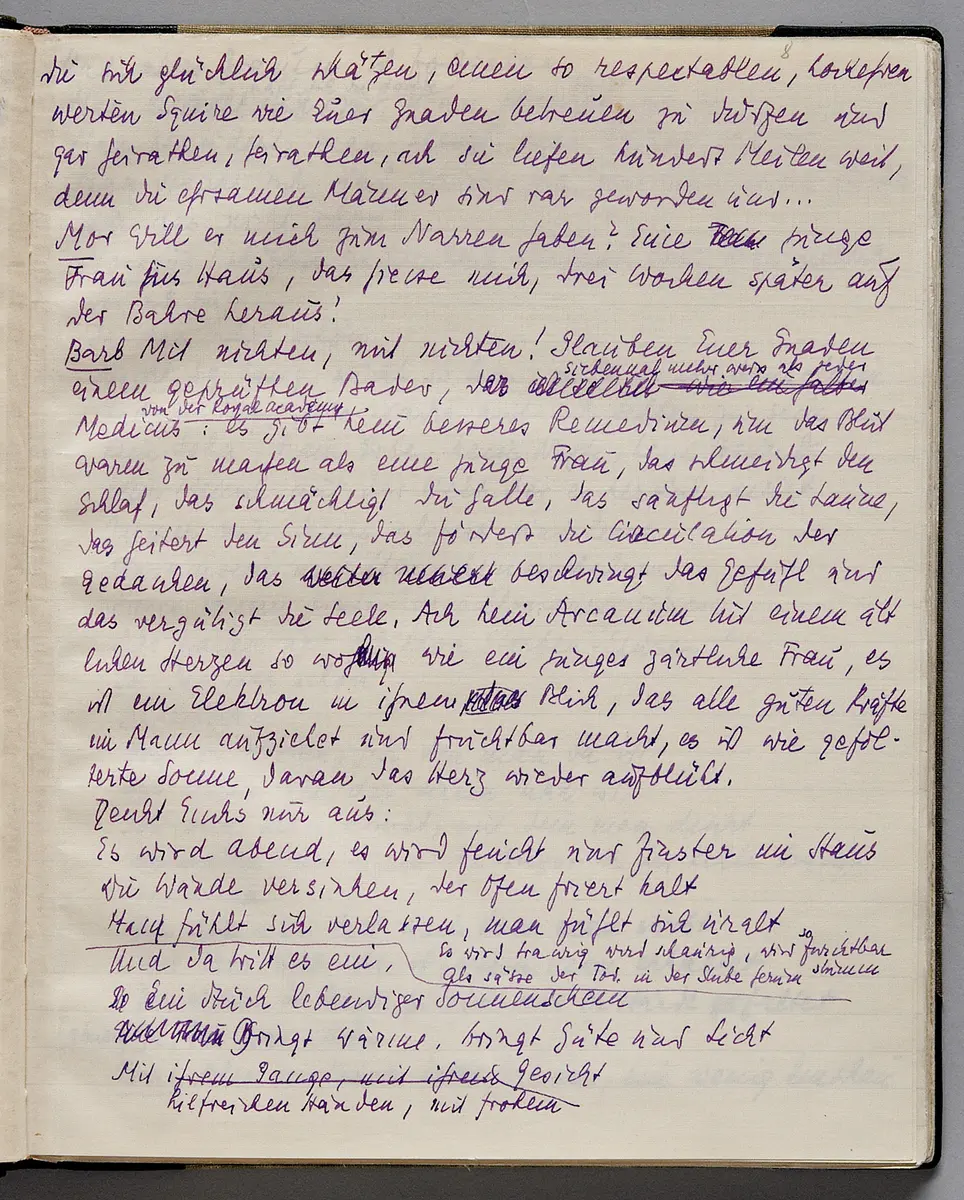 8
die sich glücklich schätzen, einen so respectablen, hochehren
werten Squire wie Euer Gnaden betreuen zu dürfen und
gar heirathen, heirathen, ach sie liefen hundert Meilen weit,
denn die ehrsamen Männer sind rar geworden und...
Mor Will er mich zum Narren haben? Eine junge
Frau ins Haus, das hiesse mich, drei Wochen später auf
der Bahre heraus!
Barb Mit nichten, mit nichten! Glauben Euer Gnaden
siebenmal mehr weis als jeder
einem geprüften Bader, der wie ein halber
von der Royal academy
Medicus: es gibt kein besseres Remedium, um das Blut
waren zu machen als eine junge Frau, das schmeidigt den
Schlaf, das schmächtigt die Galle, das sänftigt die Laune,
das heitert den Sinn, das fördert die Circulation der
Gedanken, das beschwingt das Gefühl und
das vergütigt die Seele. Ach kein Arcanum tut einem ält
lichen Herzen so wohlig wie ein junges zärtliche Frau, es
ist ein Elektron in ihrem Blick, das alle guten Kräfte
im Mann aufziehet und fruchtbar macht, es ist wie gefol-
terte Sonne, daran das Herz wieder aufblüht.
Denkt Euchs nur aus:
Es wird abend, es wird feucht und finster im Haus
Die Wände versinken, der Ofen friert kalt
Man fühlt sich verlassen, man fühlt sich uralt
Es wird traurig wird schaurig, wird so furchtbar
Und da tritt es ein,
als sässe der Tod in der Stube herum stumm
So Ein Stück lebendiger Sonnenschein
Bringt Wärme, bringt Güte und Licht
Mit ihrem Gange, mit ihrem Gesicht
hilfreichen Händen, mit frohem